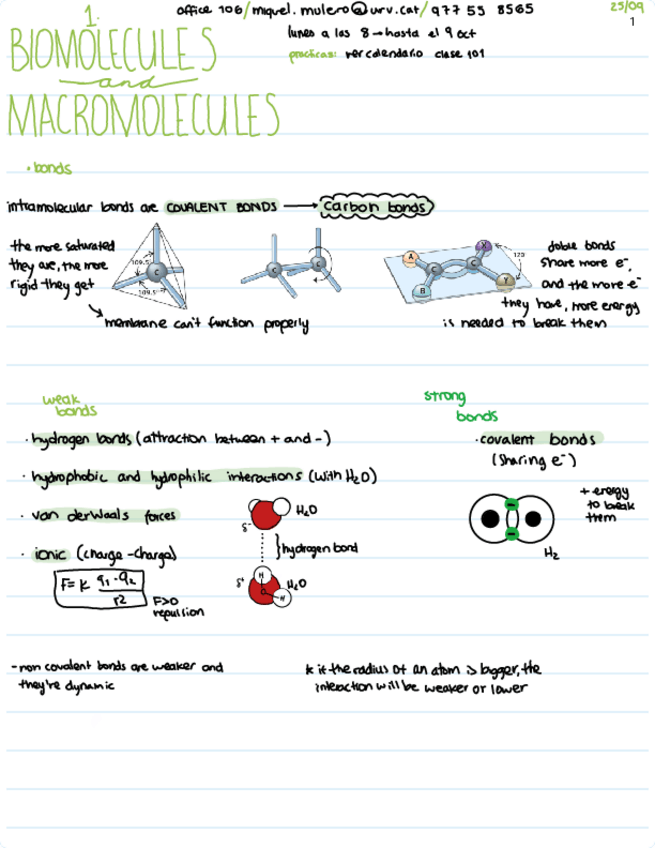 office 106/miquel.mulero@urv.cat/977 55 8565
25/09
1
lunes a las 8→hasta el 9 oct
practicas: ver calendario clase 101
1.
BIOMOLECULES
and
MACROMOLECULES
· bonds
intramolecular bonds are COVALENT BONDS → carbon bonds
the more saturated
they are, the more
rigid they get
membrane can't function properly
109.5°
109.5°
C
C
C
A
B
C
C
X
Y
120
doble bonds
share more e⁻,
and the more e⁻
they have, more energy
is needed to break them
weak
bonds
· hydrogen bonds (attraction between + and -)
· hydrophobic and hydrophilic interactions (with H₂O)
· van der Waals forces
· ionic (charge-charge)
F= K q₁·q₂
r2
F>0
repulsion
H₂O
δ⁻
hydrogen bond
δ⁺
H
H₂O
O
H
strong
bonds
· covalent bonds
(sharing e⁻)
+ energy
to break
them
H₂
- non covalent bonds are weaker and
they're dynamic
* if the radius of an atom is bigger, the
interaction will be weaker or lower